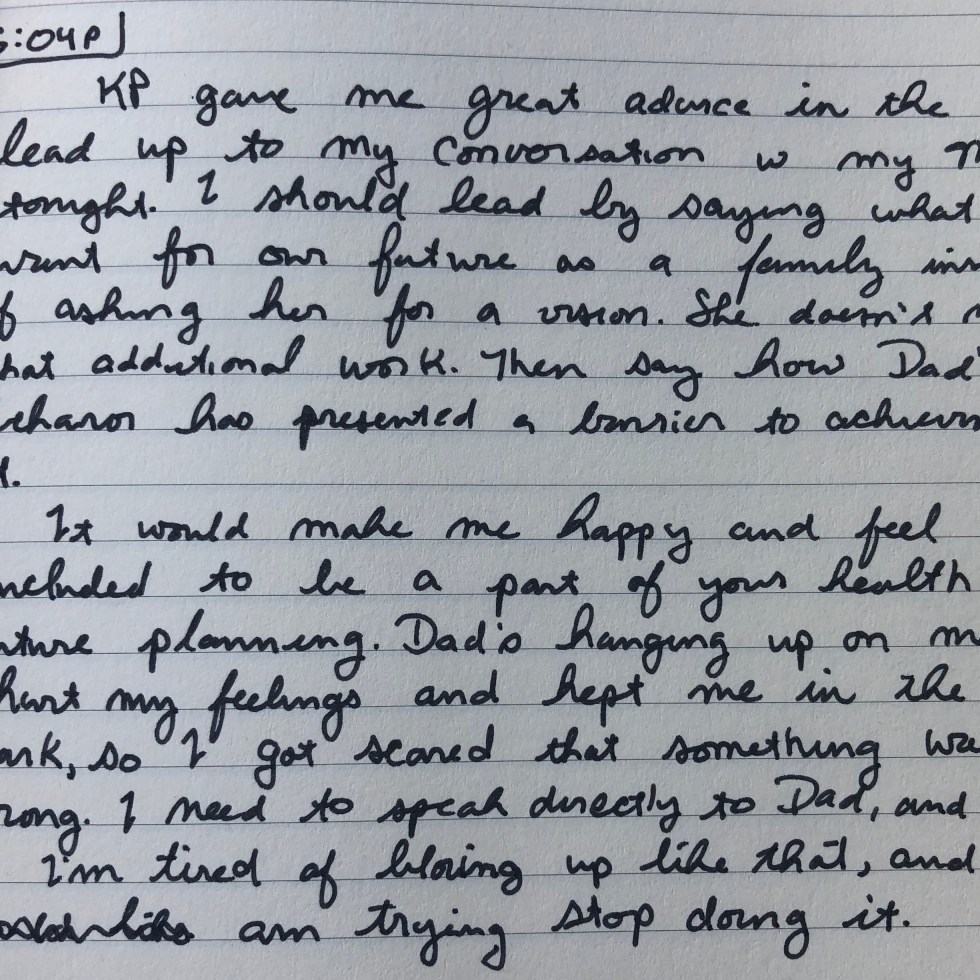 5:04P
KP gave me great advice in the
lead up to my conversation w my
tonight. I should lead by saying what
want for our future as a family
of asking her for a vision. She doesn't
that additional work. Then say how Dad'
behavior has presented a barrier to
it.
It would make me happy and feel
included to be a part of your health
future planning. Dad's hanging up on
hurt my feelings and kept me in the
dark, so I got scared that something
wrong. I need to speak directly to Dad, and
I'm tired of blowing up like that, and
am trying stop doing it.